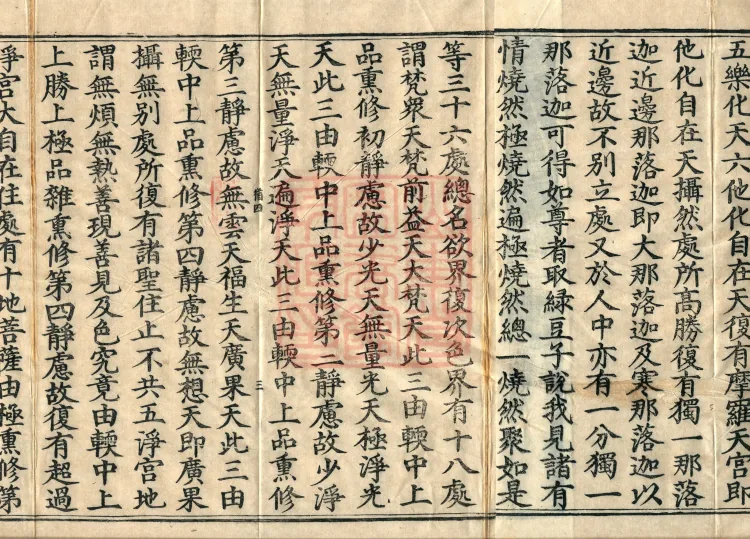 五樂化天六他化自在天復有摩羅天宮即
他化自在天攝然處所高勝復有獨一那落
迦近邊那落迦即大那落迦及寒那落迦以
近邊故不別立處又於人中亦有一分獨一
那落迦可得如尊者取緑豆子說我見諸有
情燒然極燒然遍極燒然總一燒然聚如是
等三十六處總名欲界復次色界有十八處
謂梵衆天梵前益天大梵天此三由輭中上
品熏修初靜慮故少光天無量光天極淨光
天此三由輭中上品熏修第二靜慮故少淨
天無量淨天遍淨天此三由輭中上品熏修
三
第三靜慮故無雲天福生天廣果天此三由
輭中上品熏修第四靜慮故無想天即廣果
攝無別處所復有諸聖住止不共五淨宮地
謂無煩無熱善現善見及色究竟由輭中上
上勝上極品雜熏修第四靜慮故復有超過
淨宮大自在住處有十地菩薩由極熏修第